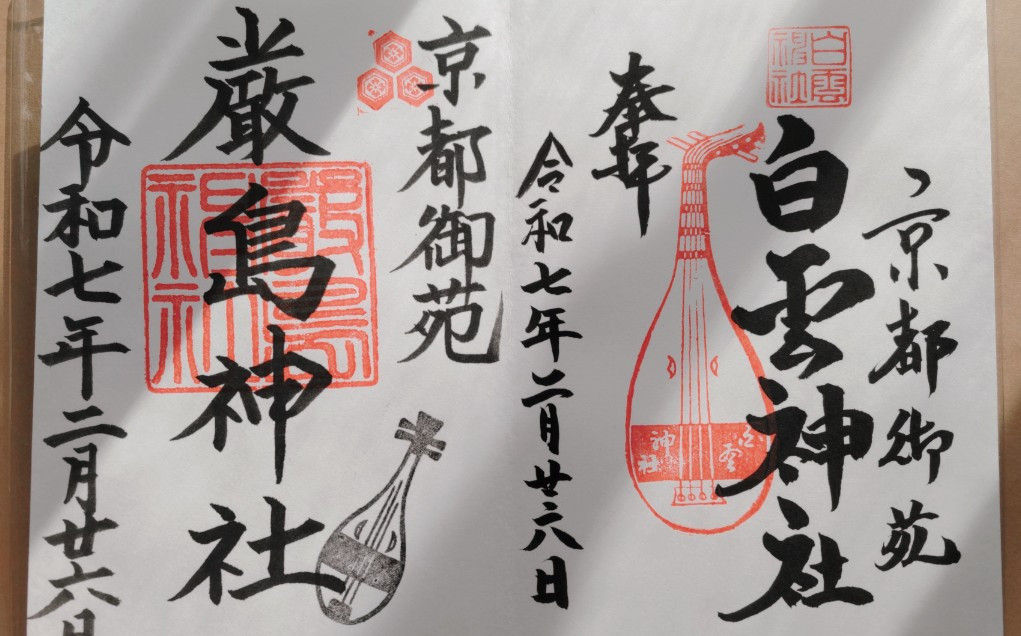 京都御苑
白雲神社
白雲神社
奉拝
白雲
神社
令和七年二月廿六日
京都御苑
厳島神社
令和七年二月廿六日